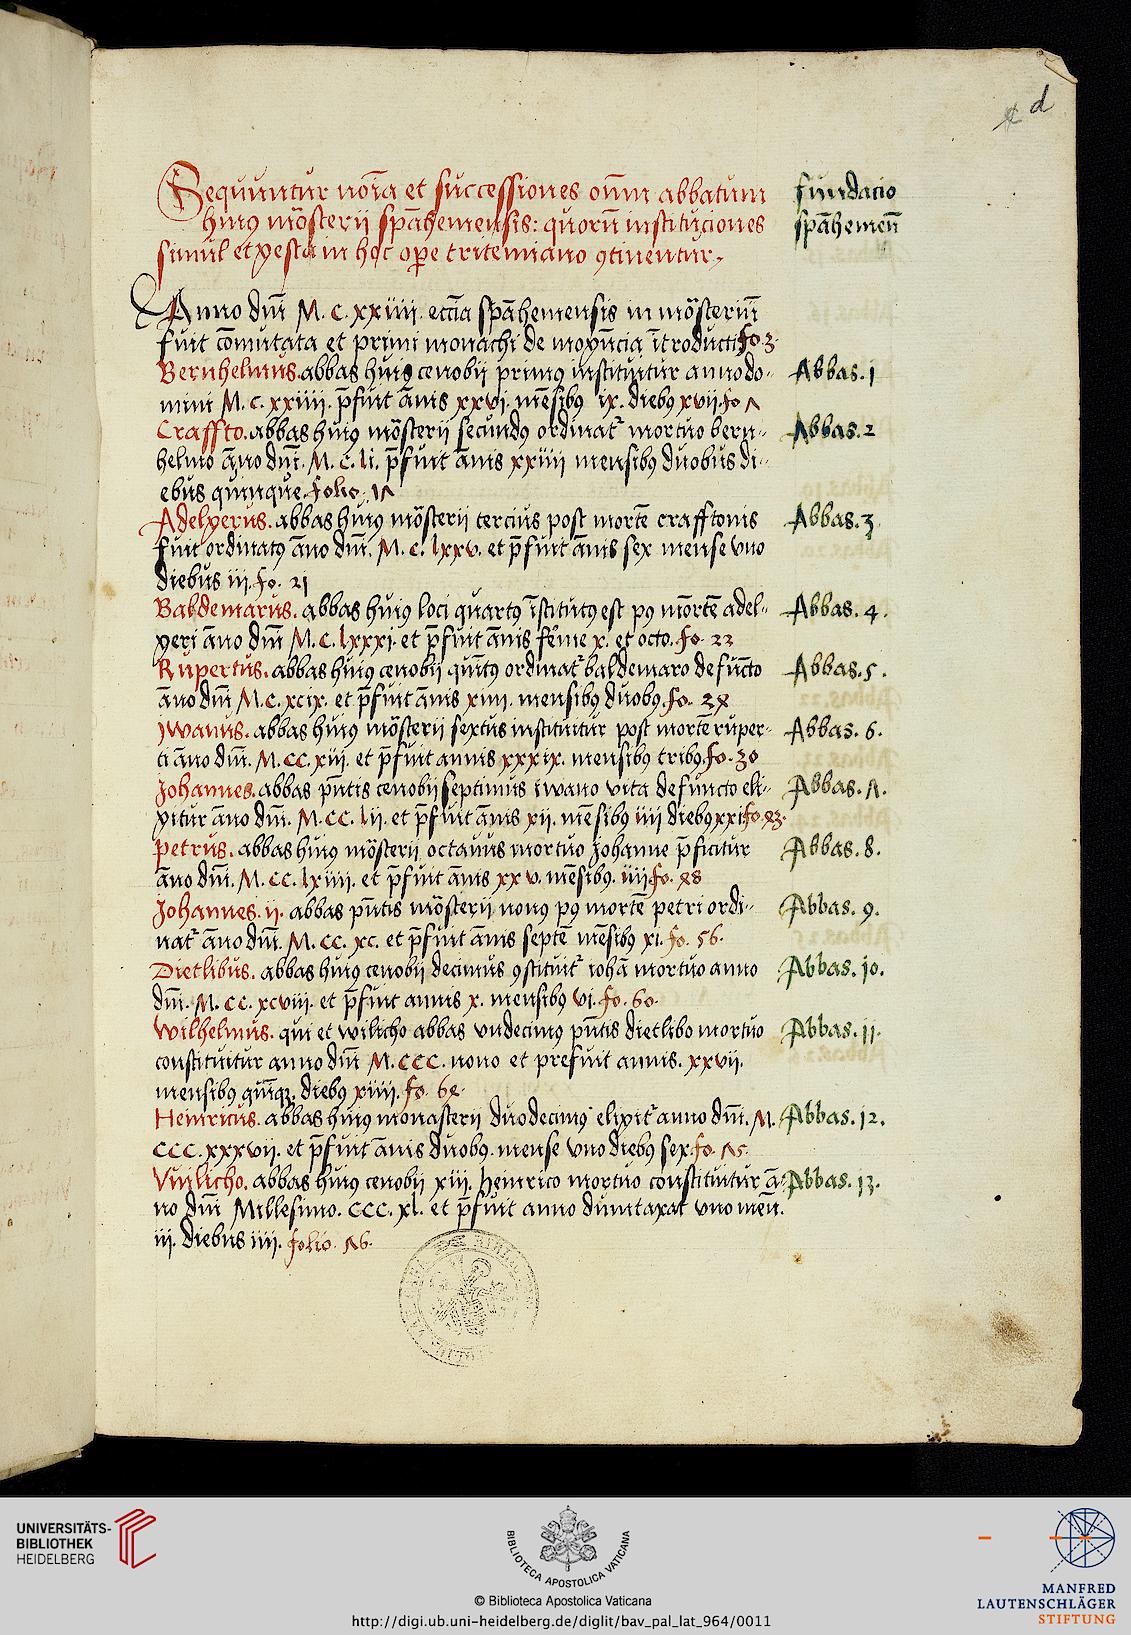 d
Sequuntur nōīa et successiones om̄m abbatum
huiꝰ mōsterij spāhemensis: quorū instituciones
simul et gesta in hoc oꝑe tritemiano ꝯtinentur.
fundacio
spāhemen̄
Anno dn̄i M. C. xxiiii. eccīa spāhemensis in mōsteriū
fuit cōmutata et primi monachi de mogūcia ītroducti fo. 3.
Bernhelmus. abbas huiꝰ cenobij primꝰ instituitur anno do-
mini M. C. xxiiii. p̄fuit ānis xxvi. mēsibꝰ ix. diebꝰ xvii. fo ꝩ
Abbas. 1
Craffto. abbas huiꝰ mōsterij secundꝰ ordinat̄ mortuo bern-
helmo āno dn̄i. M. C. li. p̄fuit ānis xxiiii mensibꝰ duobus di-
ebus quinque. folio. 1ꝩ
Abbas. 2
Adelgerus. abbas huiꝰ mōsterij tercius post mortē crafftonis
fuit ordinatꝰ āno dn̄i. M. C. lxxv. et p̄fuit ānis sex mense vno
diebus iij. fo. 21
Abbas. 3
Baldemarus. abbas huiꝰ loci quartꝰ īstitutꝰ est pꝰ mōrtē adel-
geri āno dn̄i M. C. lxxxi. et p̄fuit ānis fēme x. et octo. fo. 22
Abbas. 4.
Rupertus. abbas huiꝰ cenobij quītꝰ ordinat̄ baldemaro defūcto
āno dn̄i M. C. xcix. et p̄fuit ānis xiiii. mensibꝰ duobꝰ. fo. 28
Abbas. 5.
Jwanus. abbas huiꝰ mōsterij sextus instituitur post mortē ruper-
ti āno dn̄i. M. CC. xiij. et p̄fuit annis xxxix. mensibꝰ tribꝰ. fo. 30
Abbas. 6.
Johannes. abbas pn̄tis cenobij septimus iwano vita defuncto eli-
gitur āno dn̄i. M. CC. lii. et p̄fuit ānis xii. mēsibꝰ iiii diebꝰ xxi fo. 43.
Abbas. 7.
Petrus. abbas huiꝰ mōsterij octauus mortuo Johanne p̄ficitur
āno dn̄i. M. CC. lxiiii. et p̄fuit ānis xxv. mēsibꝰ. iiii. fo. 48
Abbas. 8.
Johannes. ij. abbas pn̄tis mōsterij nonꝰ pꝰ mortē petri ordi-
nat̄ āno dn̄i. M. CC. xc. et p̄fuit ānis septē mēsibꝰ xi. fo. 56.
Abbas. 9.
Dietlibus. abbas huiꝰ cenobij decimus ꝯstituit̄ iohā mortuo anno
dn̄i. M. CC. xcviii. et p̄fuit annis x. mensibꝰ vi. fo. 60.
Abbas. 10.
Wilhelmus. qui et wilicho abbas vndecimꝰ pn̄tis dietlibo mortuo
constituitur anno dn̄i M. CCC. nono et prefuit annis. xxvii.
mensibꝰ quīqꝫ. diebꝰ xiiii. fo. 64.
Abbas. 11.
Heinricus. abbas huiꝰ monasterij duodecimꝰ eligit̄ anno dn̄i. M.
CCC. xxxvii. et p̄fuit ānis duobꝰ. mense vno diebꝰ sex. fo. 75.
Abbas. 12.
Vuilicho. abbas huiꝰ cenobij xiij. heinrico mortuo constituitur ā-
no dn̄i Millesimo. CCC. xl. et p̄fuit anno dumtaxat vno men̄.
iij. diebus iiii. folio. 76.
Abbas. 13.
UNIVERSITÄTS-
BIBLIOTHEK
HEIDELBERG
BIBLIOTECA APOSTOLICA VATICANA
© Biblioteca Apostolica Vaticana
http://digi.ub.uni-heidelberg.de/diglit/bav_pal_lat_964/0011
MANFRED
LAUTENSCHLÄGER
STIFTUNG